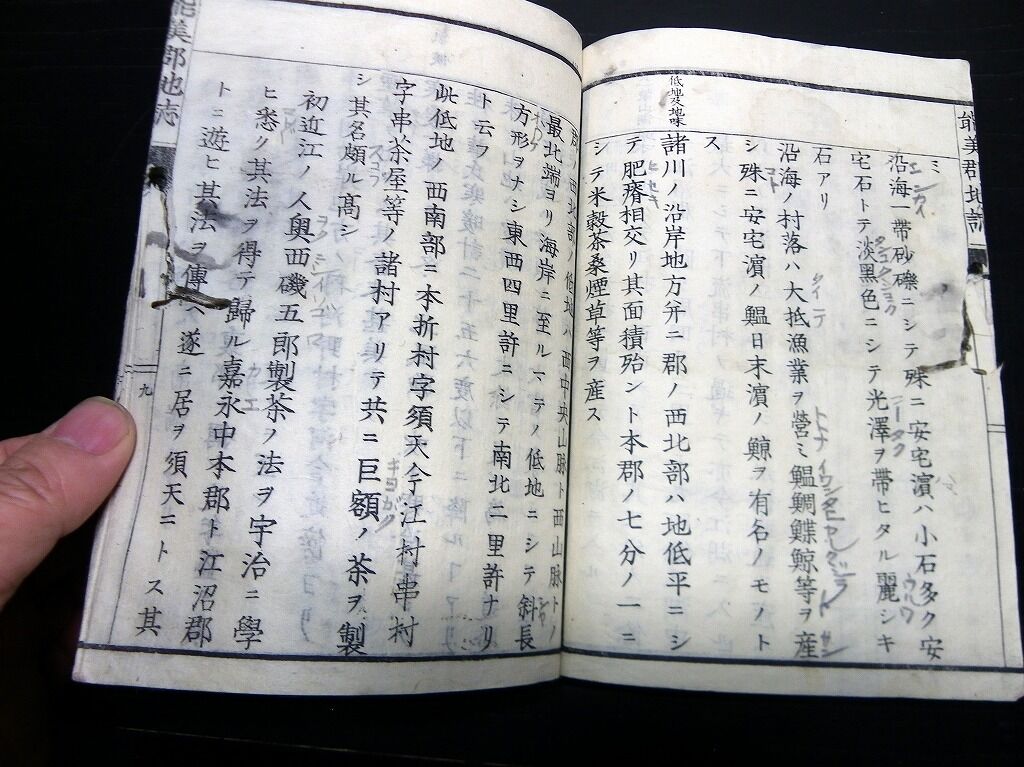 能美郡地誌
ミ
沿海一帯砂礫ニシテ殊ニ安宅濱ハ小石多ク安
宅石トテ淡黑色ニシテ光澤ヲ帶ヒタル麗シキ
石アリ
沿海ノ村落ハ大抵漁業ヲ營ミ鰛鯛鰈鯨等ヲ産
シ殊ニ安宅濱ノ鰛日末濱ノ鯨ヲ有名ノモノト
ス
低地及地味
諸川ノ沿岸地方幷ニ郡ノ西北部ハ地低平ニシ
テ肥瘠相交リ其面積殆ント本郡ノ七分ノ一ニ
シテ米穀茶桑煙草等ヲ産ス
郡ノ西北部ノ低地ハ西中央山脈ト西山脈トノ
最北端ヨリ海岸ニ至ルマテノ低地ニシテ斜長
方形ヲナシ東西四里許ニシテ南北二里許ナリ
ト云フ
此低地ノ西南部ニ本折村字須天今江村串村
字串茶屋等ノ諸村アリテ共ニ巨額ノ茶ヲ製
シ其名頗ル高シ
初近江ノ人奥西磯五郎製茶ノ法ヲ宇治ニ學
ヒ悉ク其法ヲ得テ歸ル嘉永中本郡ト江沼郡
トニ遊ヒ其法ヲ傳ヘ遂ニ居ヲ須天ニトス其
能美郡地志
九